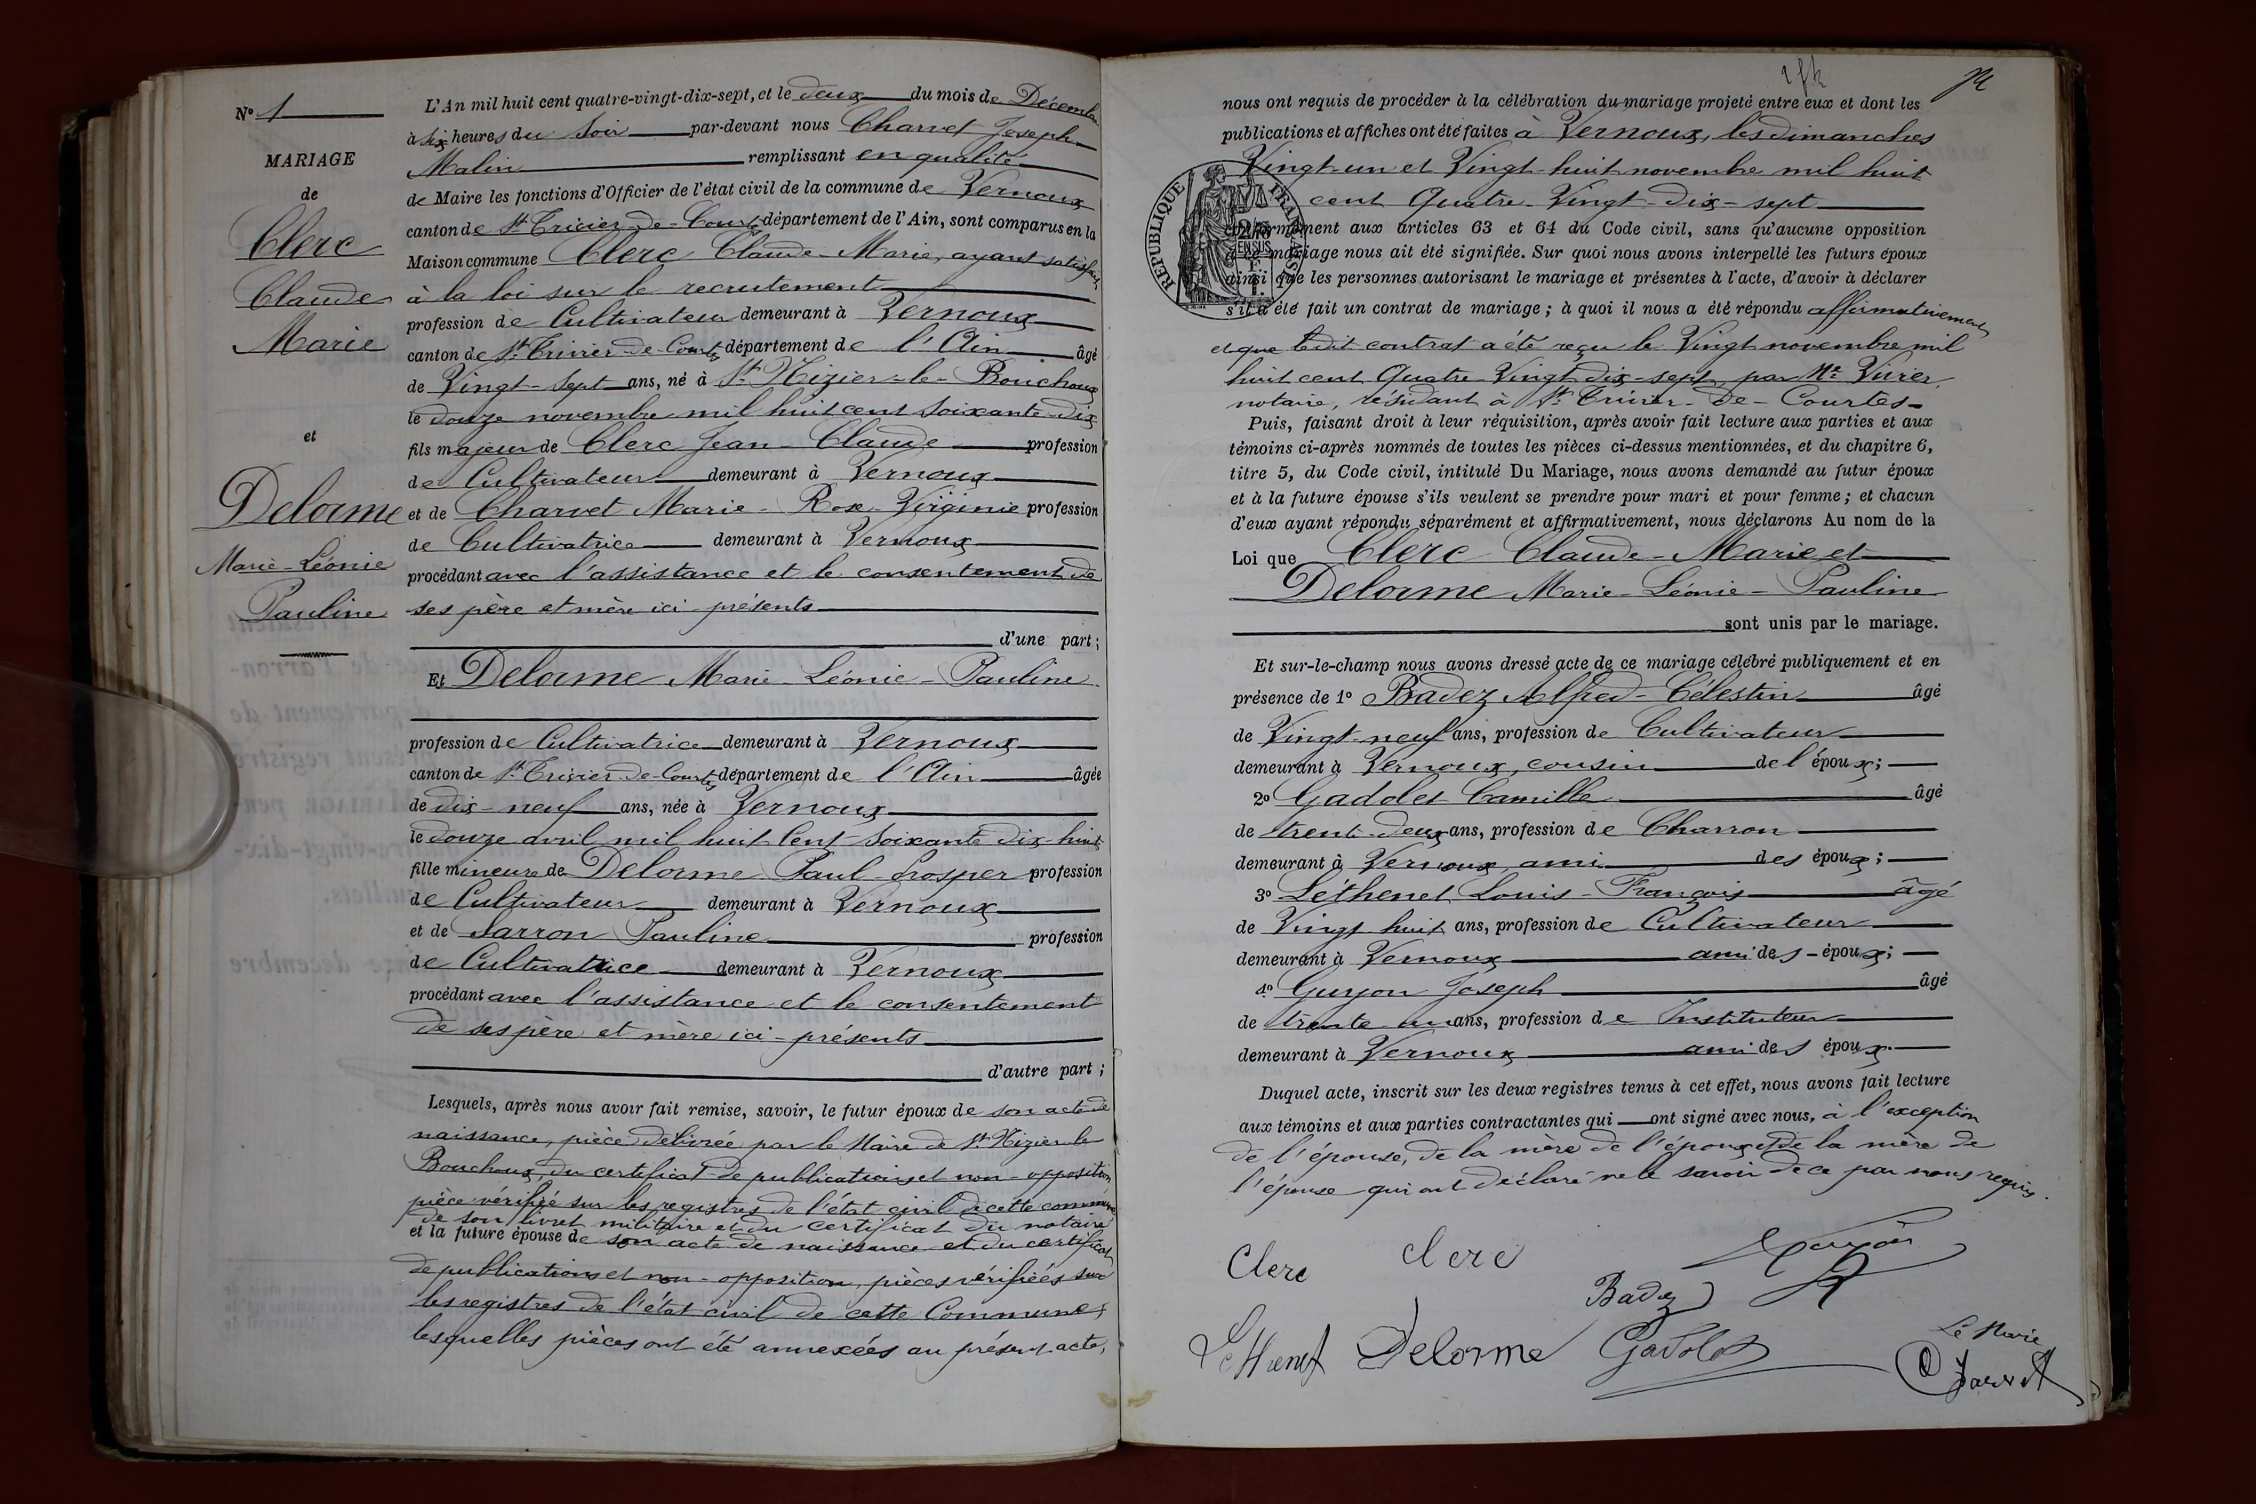 Nº 1
MARIAGE
de
Clerc
Claude
Marie
et
Delorme
Marie-Léonie
Pauline
L'An mil huit cent quatre-vingt-dix-sept, et le deux du mois de Décembre
à six heures du soir par-devant nous Charvet Joseph
Malin remplissant en qualité
de Maire les fonctions d'Officier de l'état civil de la commune de Vernoux
canton de St Trivier-de-Courtes département de l'Ain, sont comparus en la
Maison commune Clerc Claude-Marie, ayant satisfait
à la loi sur le recrutement
profession de Cultivateur demeurant à Vernoux
canton de St Trivier-de-Courtes département de l'Ain âgé
de Vingt-sept ans, né à St Nizier-le-Bouchoux
le douze novembre mil huit cent soixante-dix
fils majeur de Clerc Jean-Claude profession
de Cultivateur demeurant à Vernoux
et de Charvet Marie-Rose-Virginie profession
de Cultivatrice demeurant à Vernoux
procédant avec l'assistance et le consentement de
ses père et mère ici-présents
d'une part;
Et Delorme Marie-Léonie-Pauline
profession de Cultivatrice demeurant à Vernoux
canton de St Trivier-de-Courtes département de l'Ain âgée
de dix-neuf ans, née à Vernoux
le douze avril mil huit cent soixante dix-huit
fille mineure de Delorme Paul-Prosper profession
de Cultivateur demeurant à Vernoux
et de Sarron Pauline profession
de Cultivatrice demeurant à Vernoux
procédant avec l'assistance et le consentement
de ses père et mère ici-présents
d'autre part;
Lesquels, après nous avoir fait remise, savoir, le futur époux de son acte de
naissance, pièce délivrée par le Maire de St Nizier-le
Bouchoux, du certificat de publications et non-opposition
pièce vérifié sur les registres de l'état civil de cette commune
de son livret militaire et du certificat du notaire
et la future épouse de son acte de naissance et du certificat
de publications et non-opposition, pièces vérifiées sur
les registres de l'état civil de cette Commune;
lesquelles pièces ont été annexées au présent acte,
nous ont requis de procéder à la célébration du mariage projeté entre eux et dont les
publications et affiches ont été faites à Vernoux, les dimanches
Vingt-un et Vingt-huit novembre mil huit
cent Quatre-Vingt-Dix-sept
conformément aux articles 63 et 64 du Code civil, sans qu'aucune opposition
à ce mariage nous ait été signifiée. Sur quoi nous avons interpellé les futurs époux
ainsi que les personnes autorisant le mariage et présentes à l'acte, d'avoir à déclarer
s'il a été fait un contrat de mariage; à quoi il nous a été répondu affirmativement
et que ledit contrat a été reçu le Vingt novembre mil
huit cent Quatre-Vingt dix-sept, par Me Vivier
notaire, résidant à St Trivier-de-Courtes
Puis, faisant droit à leur réquisition, après avoir fait lecture aux parties et aux
témoins ci-après nommés de toutes les pièces ci-dessus mentionnées, et du chapitre 6,
titre 5, du Code civil, intitulé Du Mariage, nous avons demandé au futur époux
et à la future épouse s'ils veulent se prendre pour mari et pour femme; et chacun
d'eux ayant répondu séparément et affirmativement, nous déclarons Au nom de la
Loi que Clerc Claude-Marie et
Delorme Marie-Léonie-Pauline
sont unis par le mariage.
Et sur-le-champ nous avons dressé acte de ce mariage célébré publiquement et en
présence de 1º Badez Alfred-Célestin âgé
de Vingt-neuf ans, profession de Cultivateur
demeurant à Vernoux, cousin de l'époux;
2º Gadolet Camille âgé
de trent-deux ans, profession de Charron
demeurant à Vernoux, ami des époux;
3º Léthenet Louis-François âgé
de Vingt huit ans, profession de Cultivateur
demeurant à Vernoux ami des époux;
4º Guyon Joseph âgé
de trente-un ans, profession de Instituteur
demeurant à Vernoux ami des époux.
Duquel acte, inscrit sur les deux registres tenus à cet effet, nous avons fait lecture
aux témoins et aux parties contractantes qui ont signé avec nous, à l'exception
de l'épouse, de la mère de l'époux et de la mère de
l'épouse qui ont déclaré ne le savoir de ce par nous requis.
REPUBLIQUE FRANÇAISE
Clerc
Clerc
Guyon
Badez
Lethenet
Delorme
Gadolet
Le Maire
Charvet